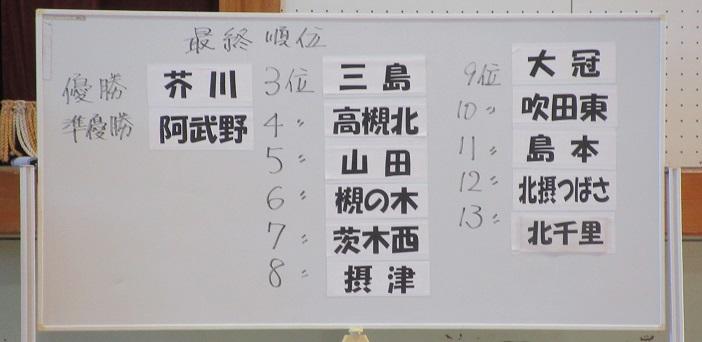 最終順位
優勝 芥川
準優勝 阿武野
3位 三島
4〃 高槻北
5〃 山田
6〃 槻の木
7〃 茨木西
8〃 摂津
9位 大冠
10〃 吹田東
11〃 島本
12〃 北摂つばさ
13〃 北千里